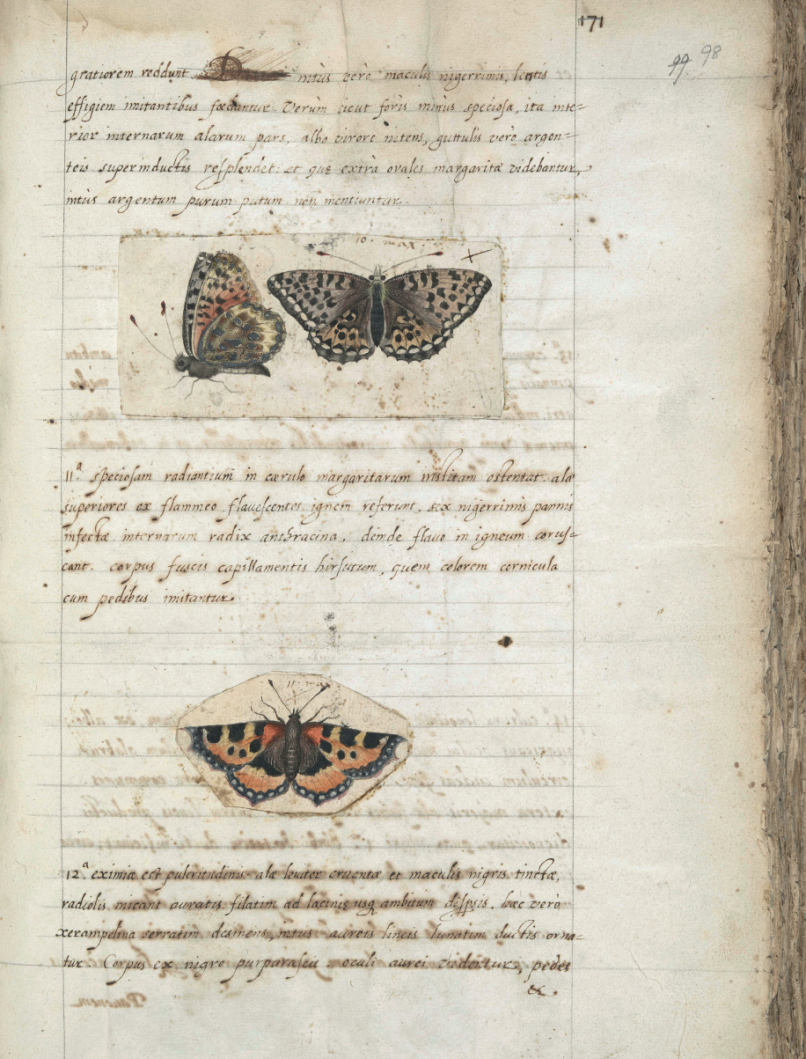 171
99 98
gratiorem reddunt intus vero maculis nigerrimis, lentis
effigiem imitantibus foedantur. Verùm sicut foris minus speciosa, ita inte-
rior internarum alarum pars, albo virore nitens, guttulis verò argen-
teis superinductis resplendet: et quę extrà ovales margaritæ videbantur,
intùs argentum purum putum non mentiuntur.
10.
11.ª speciosam radiantium in cæruleo margaritarum ostentat. alæ
superiores ex flammeo flavescentes ignem referunt, sex nigerrimis pannis
infectæ. internarum radix anthracina, deinde flavo in igneum corus-
cant. corpus fuscis capillamentis hirsutum, quem colorem cornicula
cum pedibus imitantur.
11.
12.ª eximiæ est pulcritudinis. alæ leviter cruentæ et maculis nigris tinctæ,
radiolis micant auratis filatim ad lacinię usq ambitum dispsis. hæc verò
xerampelina serratim desinens, intus aureis lineis lunatim ductis orna-
tur Corpus ex nigro oculi aurei videntur, pedes
&.